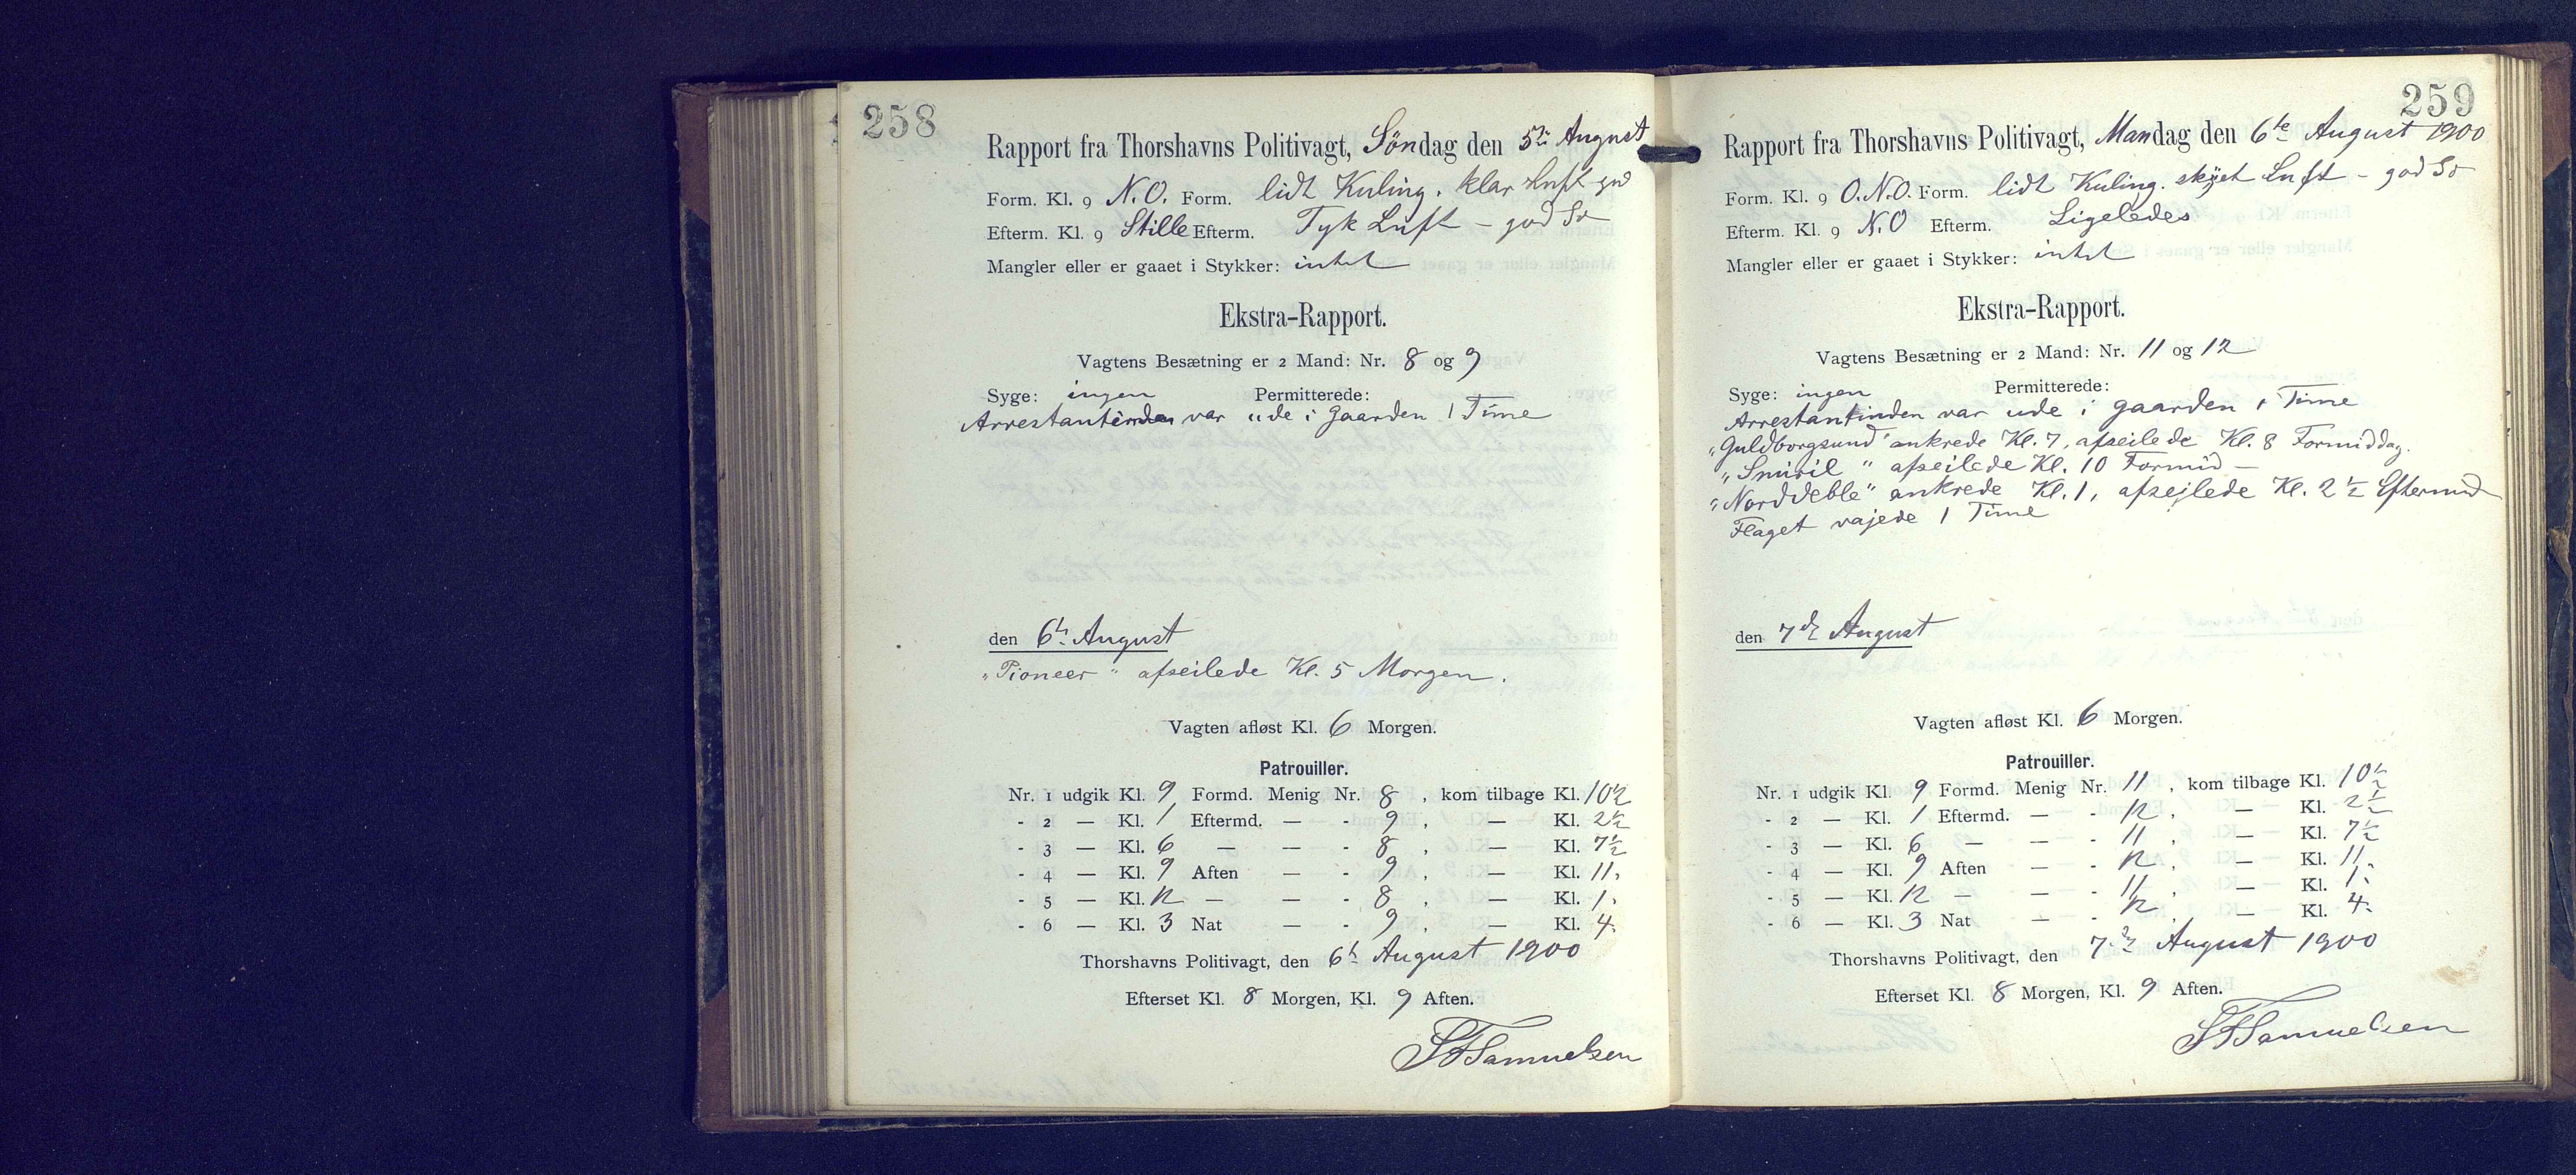 258
Rapport fra Thorshavns Politivagt, Söndag den 5te August
Form. Kl. 9 N.O. Form. lidt Kuling. klar Luft god
Efterm. Kl. 9 Stille Efterm. Tyk Luft – god So
Mangler eller er gaaet i Stykker: intet
Ekstra-Rapport.
Vagtens Besætning er 2 Mand: Nr. 8 og 9
Syge: ingen Permitterede:
Arrestantinden var ude i Gaarden 1 Time
den 6te August
"Pioneer" afseilede Kl. 5 Morgen.
Vagten afløst Kl. 6 Morgen.
Patrouiller.
Nr. 1 udgik Kl. 9 Formd. Menig Nr. 8, kom tilbage Kl. 10½
- 2 — Kl. 1 Eftermd. — - 9, — Kl. 2½
- 3 — Kl. 6 — — - 8, — Kl. 7½
- 4 — Kl. 9 Aften — - 9, — Kl. 11.
- 5 — Kl. 12 — — - 8, — Kl. 1.
- 6 — Kl. 3 Nat — - 9, — Kl. 4.
Thorshavns Politivagt, den 6te August 1900
Efterset Kl. 8 Morgen, Kl. 9 Aften.
SFSamuelsen
259
Rapport fra Thorshavns Politivagt, Mandag den 6te August 1900
Form. Kl. 9 O.N.O. Form. lidt Kuling. skÿet Luft – god So
Efterm. Kl. 9 N.O Efterm. Ligeledes
Mangler eller er gaaet i Stykker: intet
Ekstra-Rapport.
Vagtens Besætning er 2 Mand: Nr. 11 og 12
Syge: ingen Permitterede:
Arrestantinden var ude i gaarden 1 Time
"Guldborgsund" ankrede Kl. 7, afseilede Kl. 8 Formiddag.
"Smiril" afseilede Kl. 10 Formid –
"Norddeble" ankrede Kl. 1, afsejlede Kl. 2½ Eftermid
Flaget vajede 1 Time
den 7de August
Vagten afløst Kl. 6 Morgen.
Patrouiller.
Nr. 1 udgik Kl. 9 Formd. Menig Nr. 11, kom tilbage Kl. 10½
- 2 — Kl. 1 Eftermd. — - 12, — Kl. 2½
- 3 — Kl. 6 — — - 11, — Kl. 7½
- 4 — Kl. 9 Aften — - 12, — Kl. 11.
- 5 — Kl. 12 — — - 11, — Kl. 1.
- 6 — Kl. 3 Nat — - 12, — Kl. 4.
Thorshavns Politivagt, den 7de August 1900
Efterset Kl. 8 Morgen, Kl. 9 Aften.
SFSamuelsen